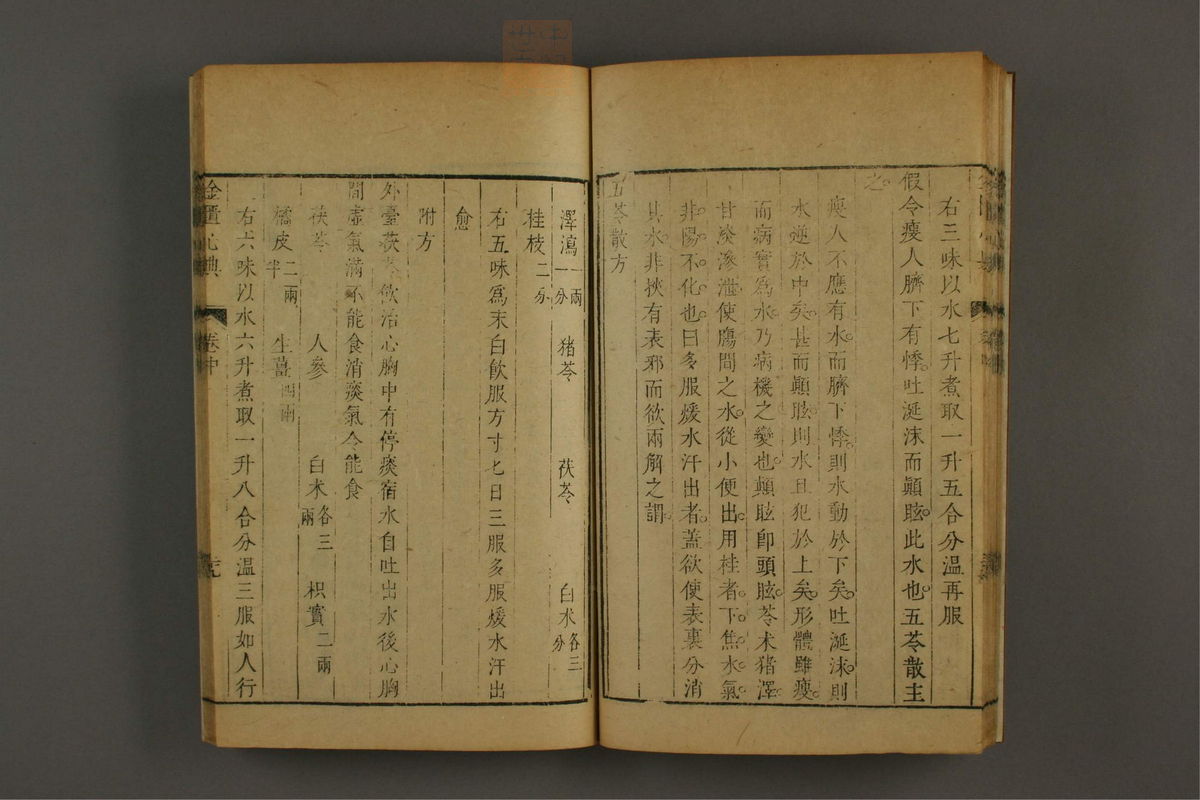 右三味以水七升煮取一升五合分溫再服
假令瘦人臍下有悸吐涎沫而顚眩此水也五苓散主
之
瘦人不應有水而臍下悸則水動於下矣吐涎沫則
水逆於中矣甚而顚眩則水且犯於上矣形體雖瘦
而病實爲水乃病機之變也顚眩卽頭眩苓朮猪澤
甘淡滲泄使腸間之水從小便出用桂者下焦水氣
非陽不化也曰多服煖水汗出者蓋欲使表裏分消
其水非挾有表邪而欲兩解之謂
五苓散方
澤瀉一兩一分 猪苓 茯苓 白朮各三分
桂枝二分
右五味爲末白飲服方寸匕日三服多服煖水汗出
愈
附方
外臺茯苓飲治心胸中有停痰宿水自吐出水後心胸
間虛氣滿不能食消痰氣令能食
茯苓 人參 白朮各三兩 枳實二兩
橘皮二兩半 生薑四兩
右六味以水六升煮取一升八合分溫三服如人行
金匱心典 卷中